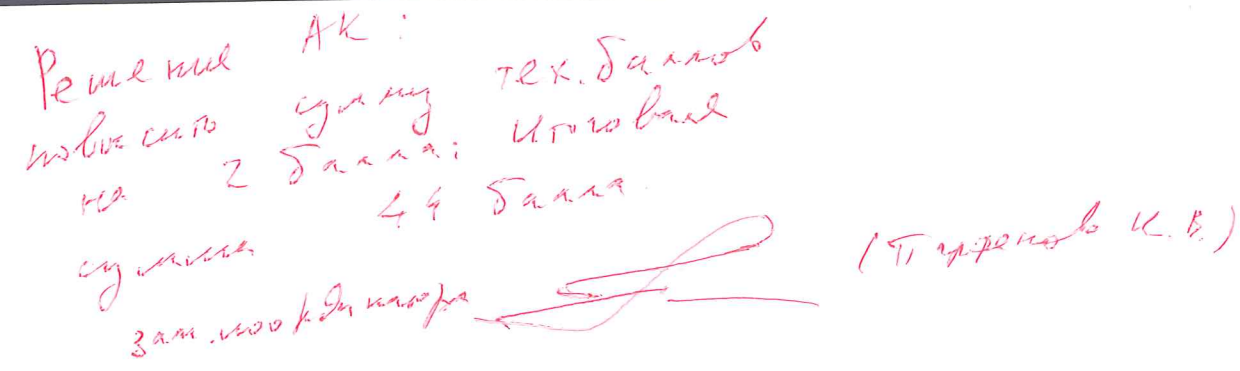 Решение АК:
повысить сумму тех. баллов
на 2 балла; Итоговая
сумма 44 балла.
зам. координатора (Парфенов К.В.)